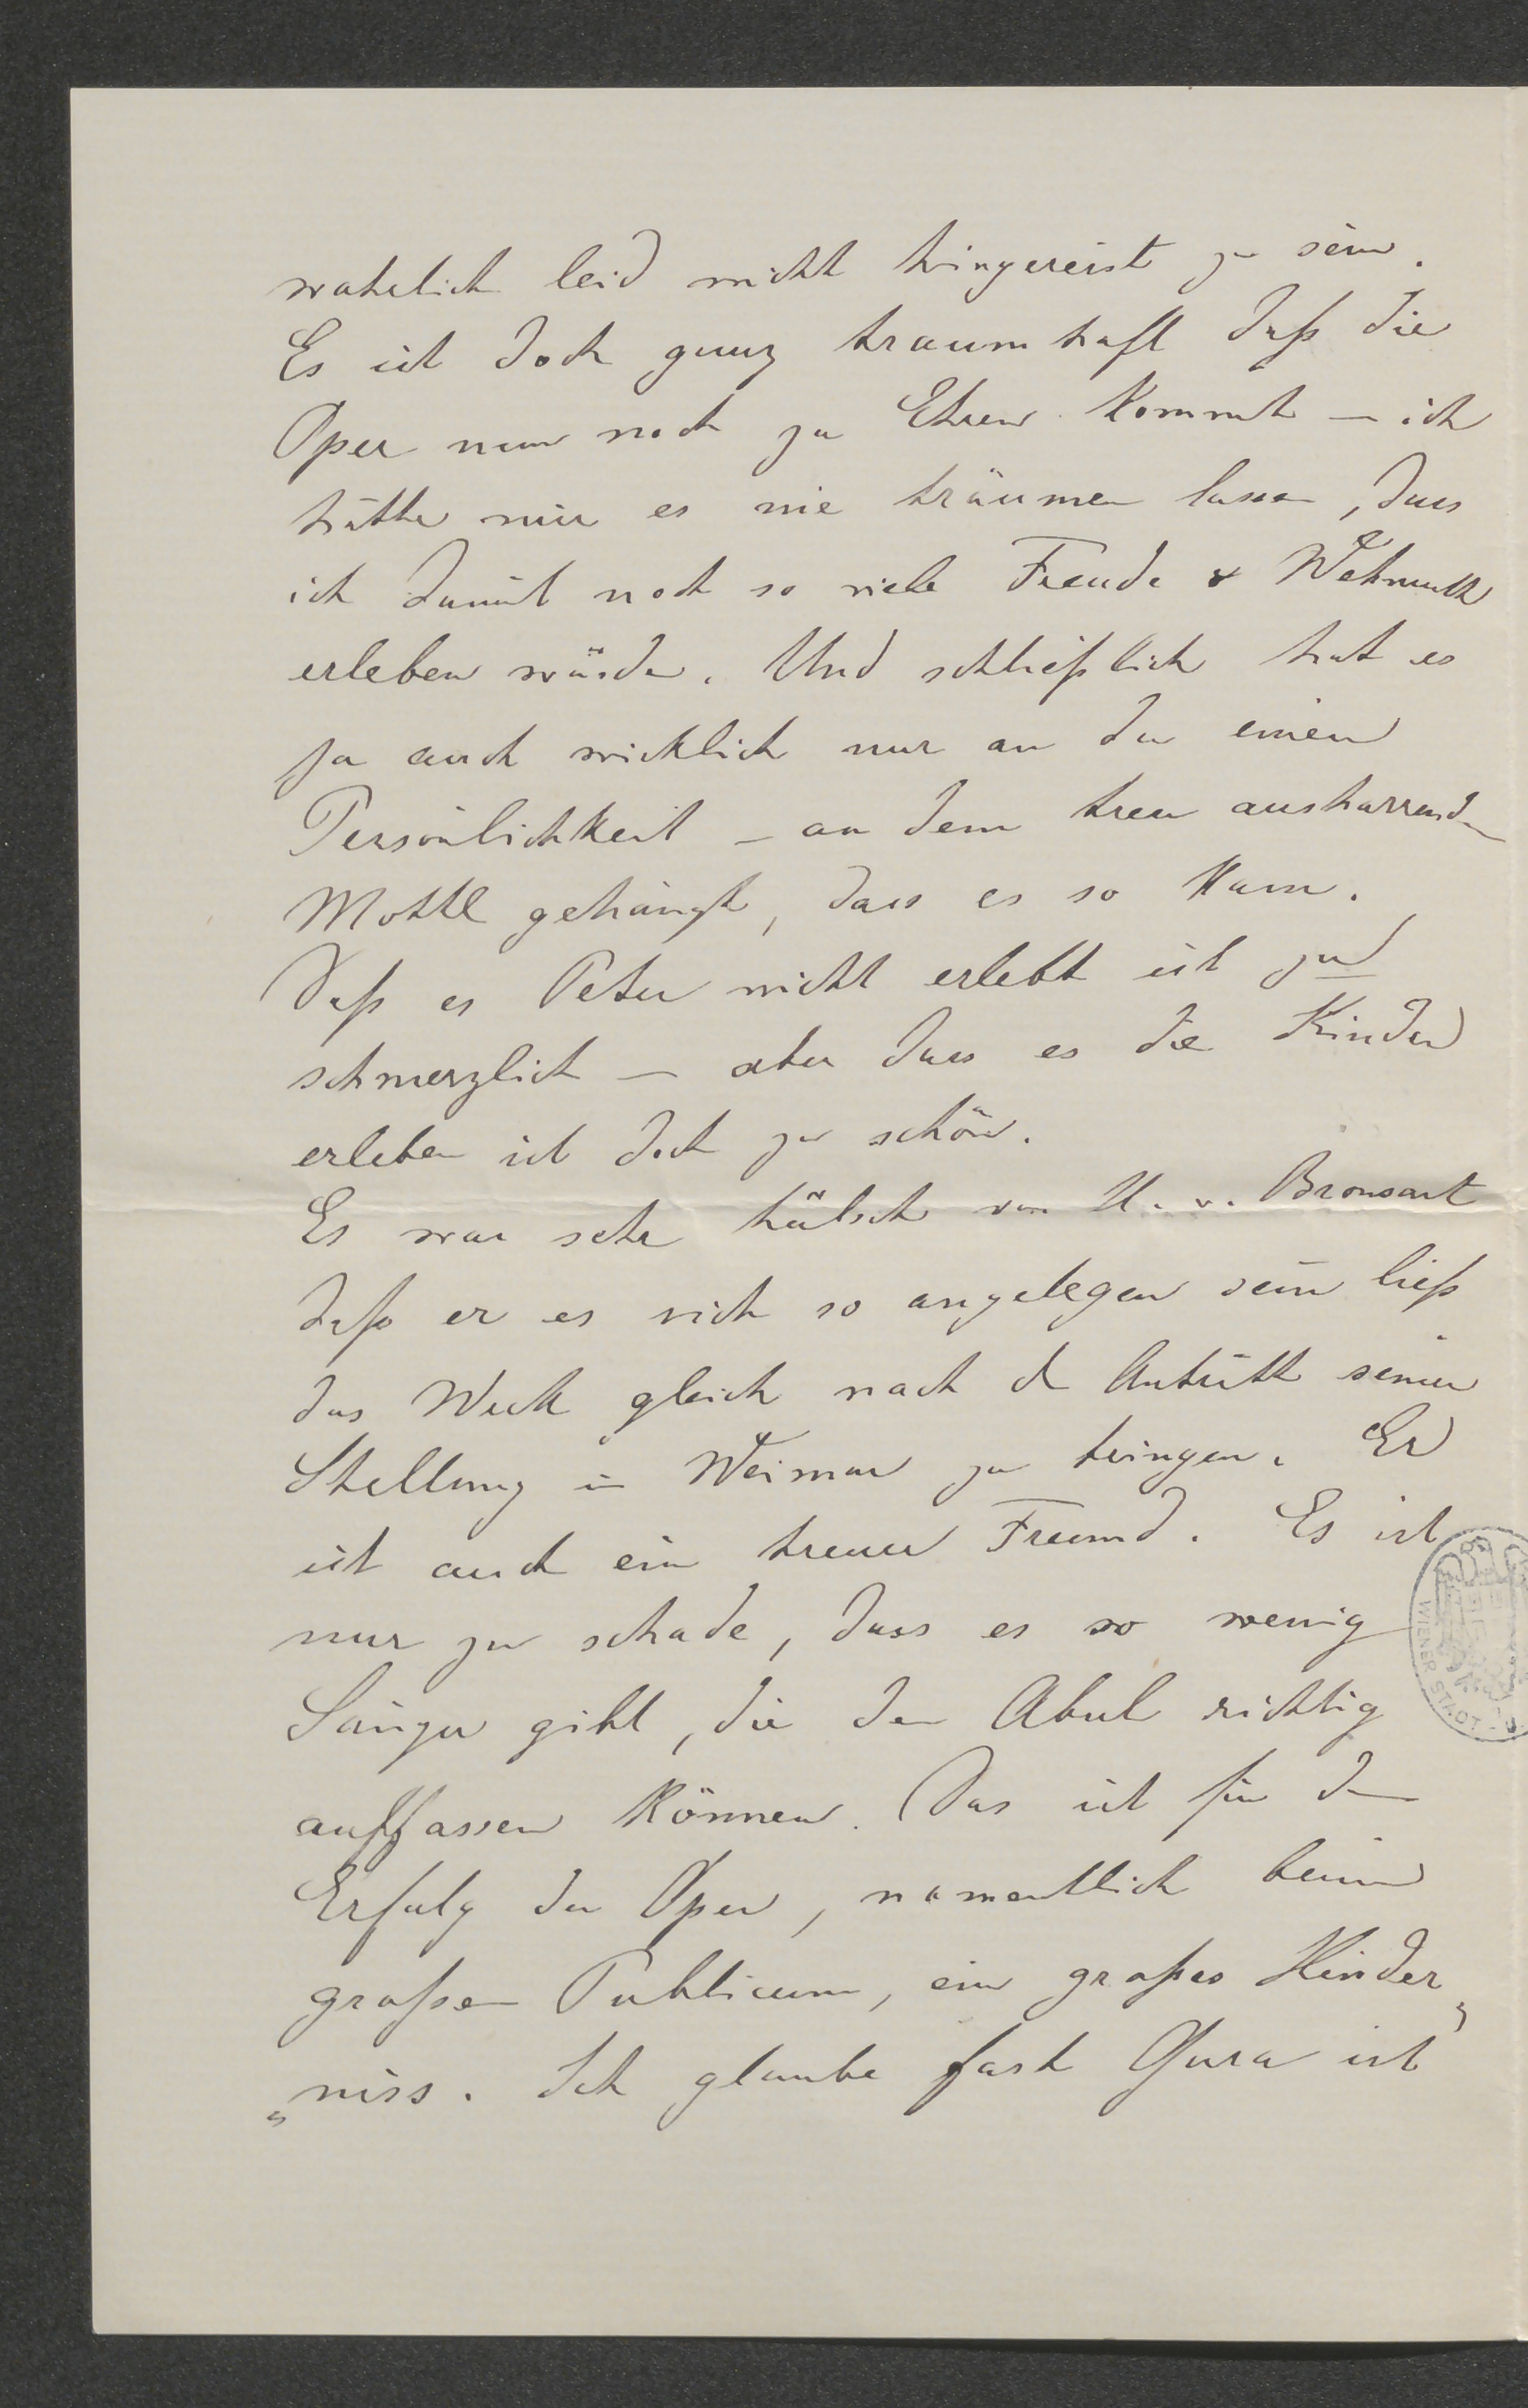 wahrlich leid nicht hingereist zu sein.
Es ist doch ganz traumhaft daß die
Oper nun noch zu Ehren kommt – ich
hätte mir es nie träumen lassen, dass
ich damit noch so viele Freude & Wehmuth
erleben würde. Und schließlich hat es
ja auch wirklich nur an der einen
Persönlichkeit – an dem treu ausharrenden
Mottl gehängt, dass es so kam.
Daß es Peter nicht erlebt ist zu
schmerzlich – aber dass es die Kinder
erleben ist doch zu schön.
Es war sehr hübsch von H. v. Bronsart
daß er es sich so angelegen sein ließ
das Werk gleich nach d Antritt seiner
Stellung in Weimar zu bringen. Er
ist auch ein treuer Freund. Es ist
nur zu schade, dass es so wenig
Sänger gibt, die den Abul richtig
auffassen können. Das ist für den
Erfolg der Oper, namentlich beim
großen Publicum, ein großes Hinder„
„niss. Ich glaube fast Gura ist
WIENER STADT-